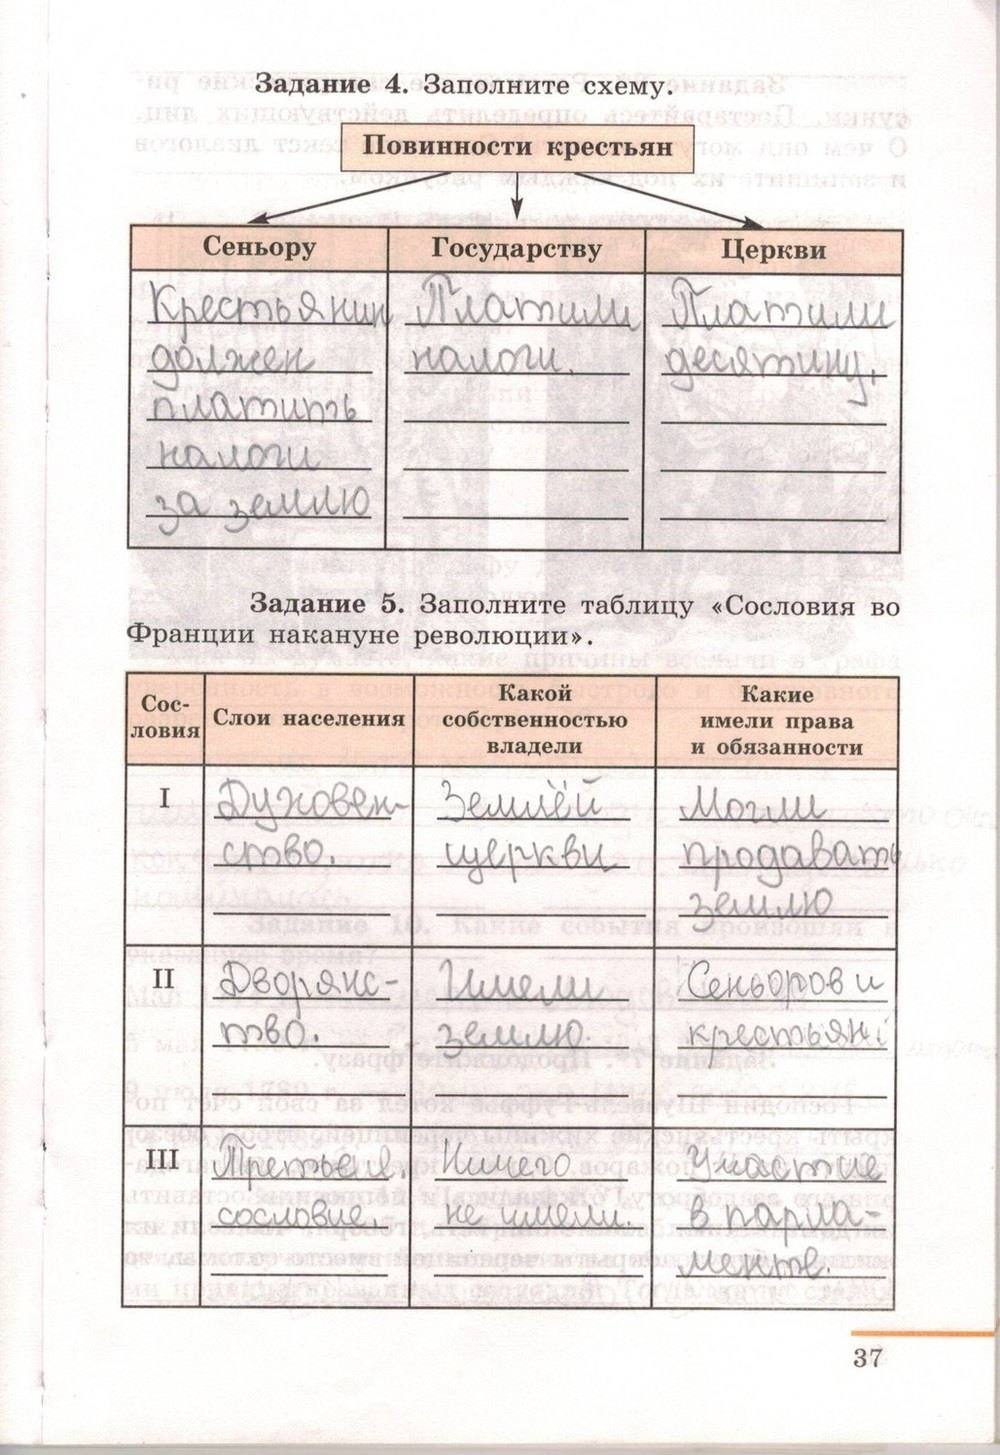 Задание 4. Заполните схему.
Повинности крестьян
Сеньору
Государству
Церкви
Крестьянин
должен
платить
налоги
за землю
Платили
налоги.
Платили
десятину.
Задание 5. Заполните таблицу «Сословия во
Франции накануне революции».
Сос-
ловия
Слои населения
Какой
собственностью
владели
Какие
имели права
и обязанности
I
Духовен-
ство.
Землёй
церкви
Могли
продавать
землю
II
Дворянс-
тво.
Имели
землю.
Сеньоров и
крестьян.
III
Третье
сословие.
Ничего
не имели.
Участие
в парла-
менте.
37